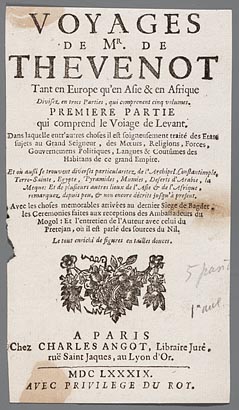 VOYAGES
DE Mr. DE
THEVENOT
Tant en Europe qu'en Asie & en Afrique
Divisez en trois Parties, qui comprennent cinq volumes.
PREMIERE PARTIE
qui comprend le Voiage de Levant.
Dans laquelle entr'autres choses il est soigneusement traité des Etats
sujets au Grand Seigneur, des Mœurs, Religions, Forces,
Gouvernemens Politiques, Langues & Coustumes des
Habitans de ce grand Empire.
Et où aussi se trouvent diverses particularitez, de l'Archipel, Constantinople,
Terre-Sainte, Egypte, Pyramides, Mumies, Deserts d'Arabie, la
Meque: Et de plusieurs autres lieux de l'Asie & de l'Afrique,
remarquez depuis peu, & non encore décrits jusqu'à present.
Avec les choses memorables arrivées au dernier Siege de Bagdet,
les Ceremonies faites aux receptions des Ambassadeurs du
Mogol: Et l'entretien de l'Auteur avec celui du
Pretejan, où il est parlé des sources du Nil.
Le tout enrichi de figures en tailles douces.
5
A PARIS
Chez CHARLES ANGOT, Libraire Juré,
ruë Saint Jaques, au Lyon d'Or.
MDC LXXXIX.
AVEC PRIVILEGE DU ROY.